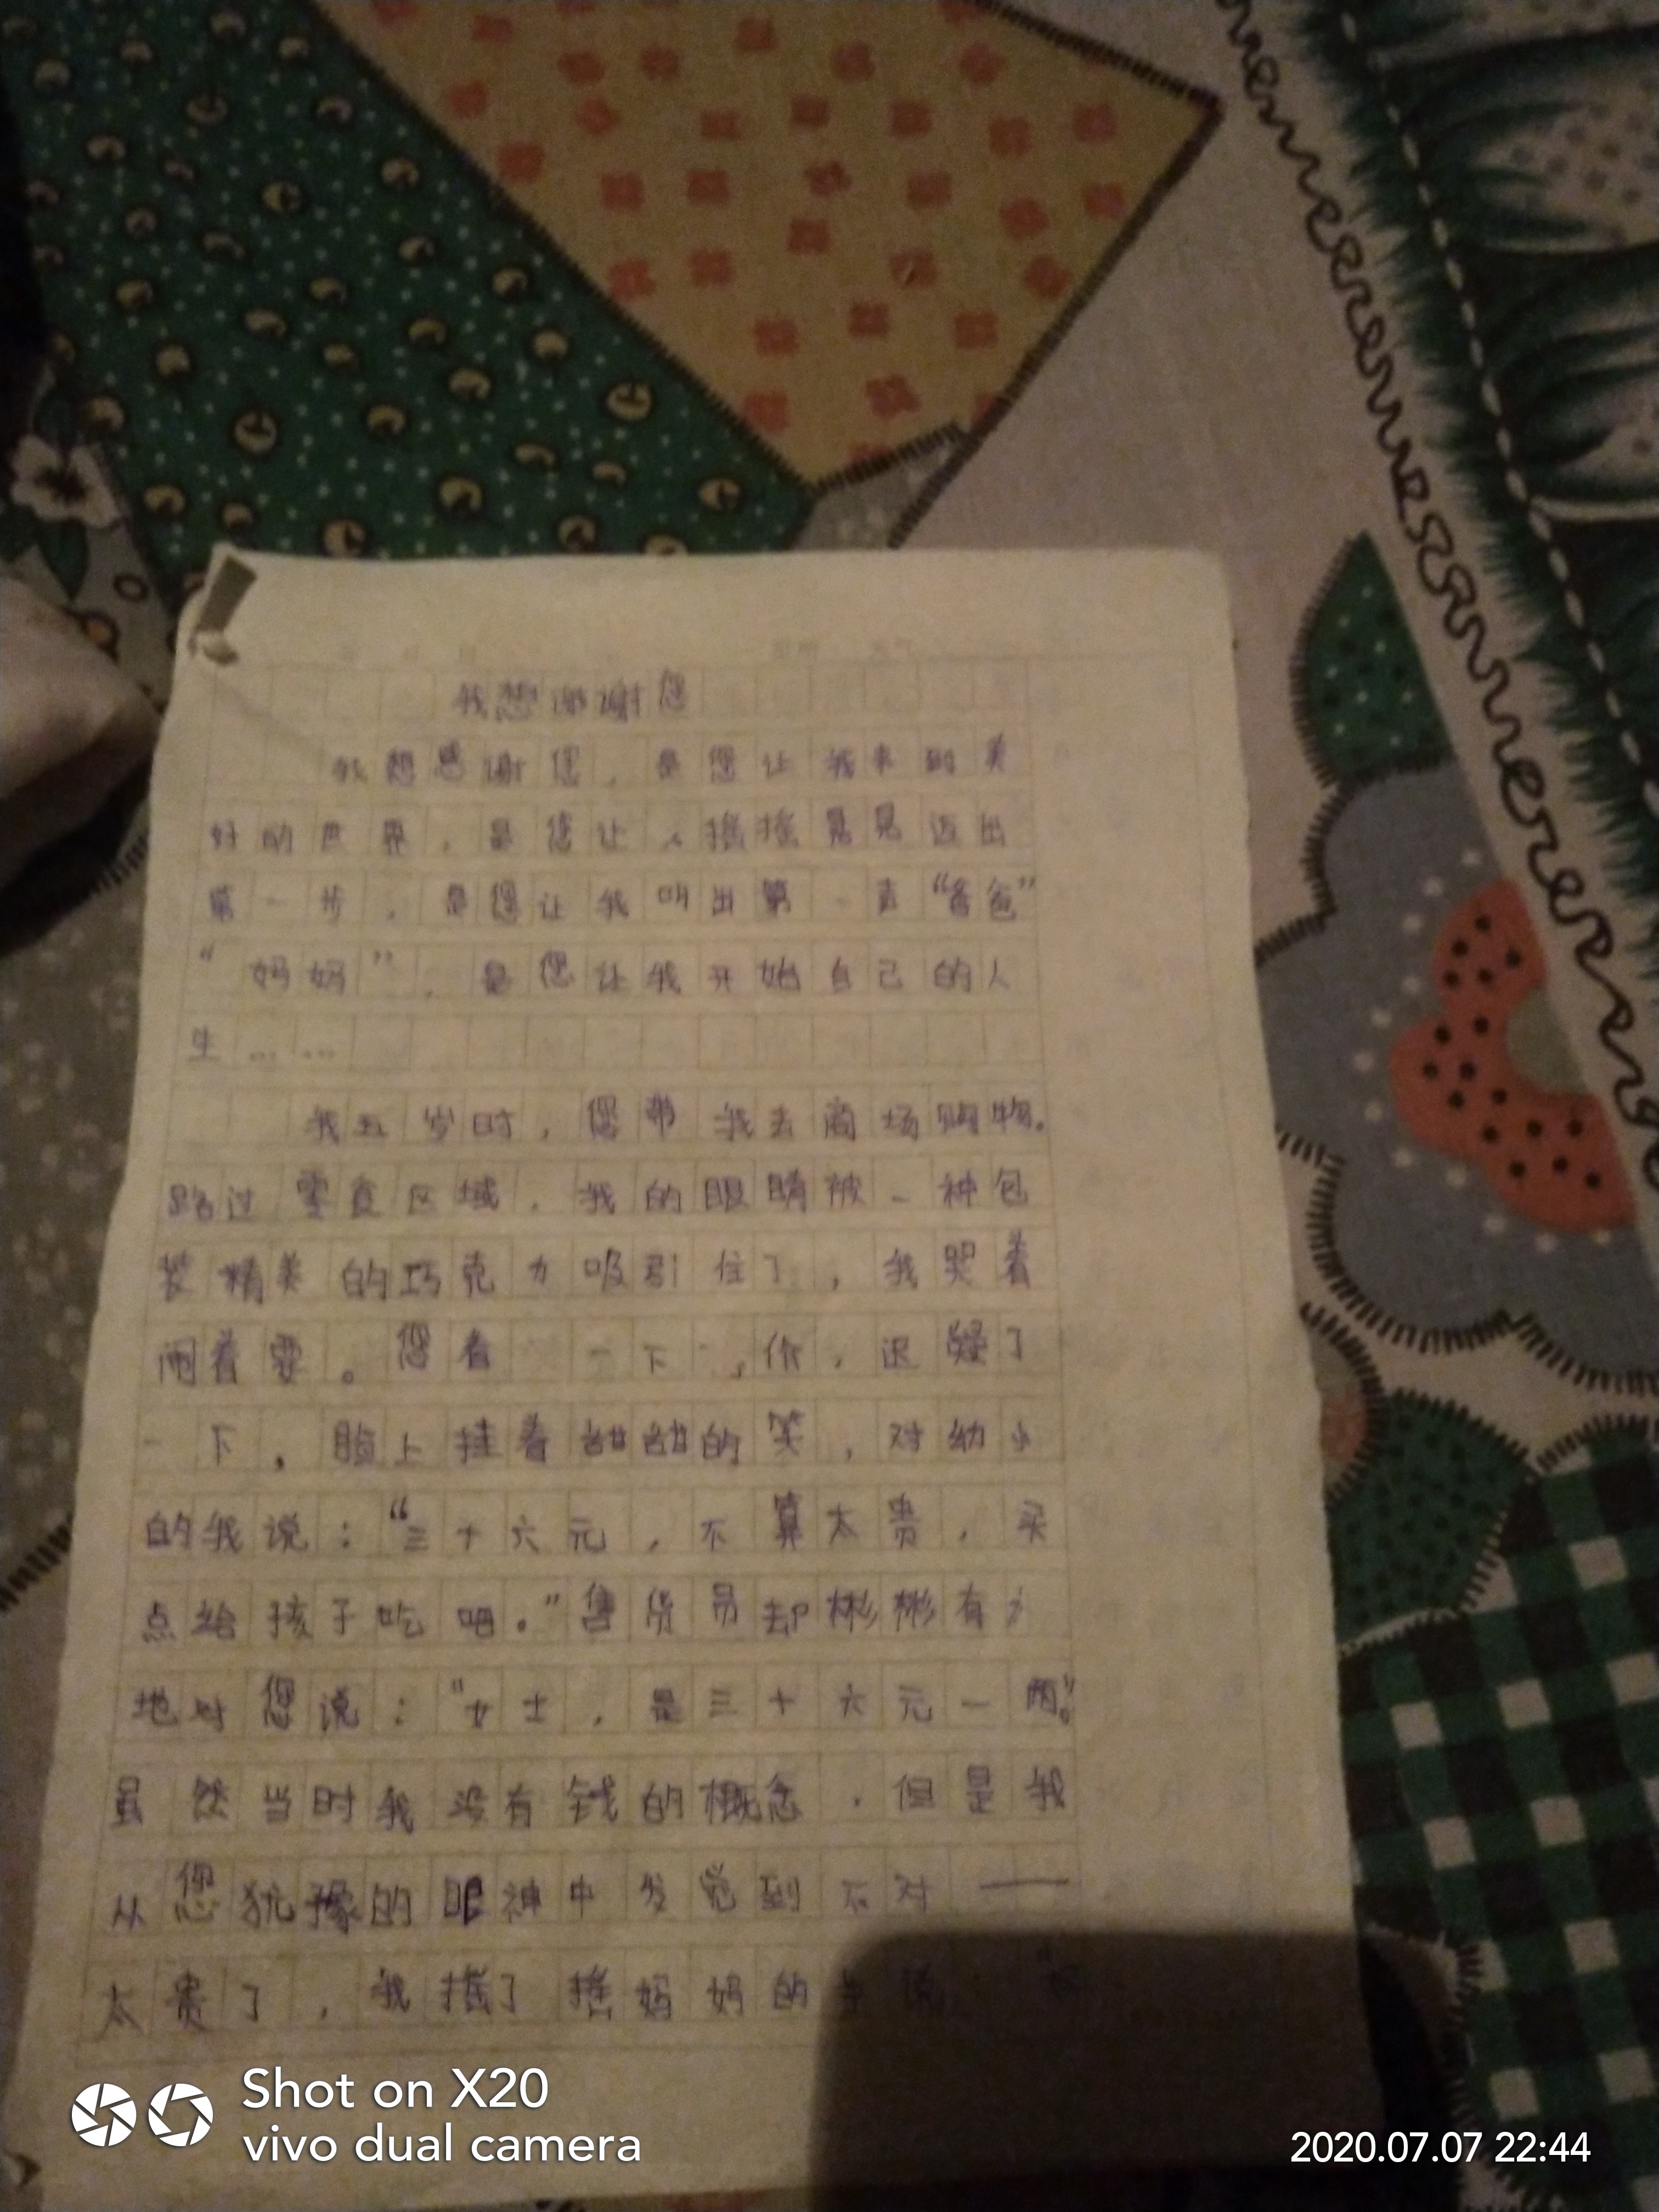 我想谢谢您
我想感谢您，是您让我来到美
好的世界，是您让人摇摇晃晃迈出
第一步，是您让我叫出第一声“爸爸”
“妈妈”，是您让我开始自己的人
生……
我五岁时，您带我去商场购物。
路过零食区域，我的眼睛被一种包
装精美的巧克力吸引住了，我哭着
闹着要。您看一下价，迟疑了
一下，脸上挂着甜甜的笑，对幼小
的我说：“三十六元，不算太贵，买
点给孩子吃吧。”售货员却彬彬有
地对您说：“女士，是三十六元一两。”
虽然当时我没有钱的概念，但是我
从您犹豫的眼神中发觉到不对——
太贵了，我摇了摇妈妈的 说
Shot on X20
vivo dual camera
2020.07.07 22:44